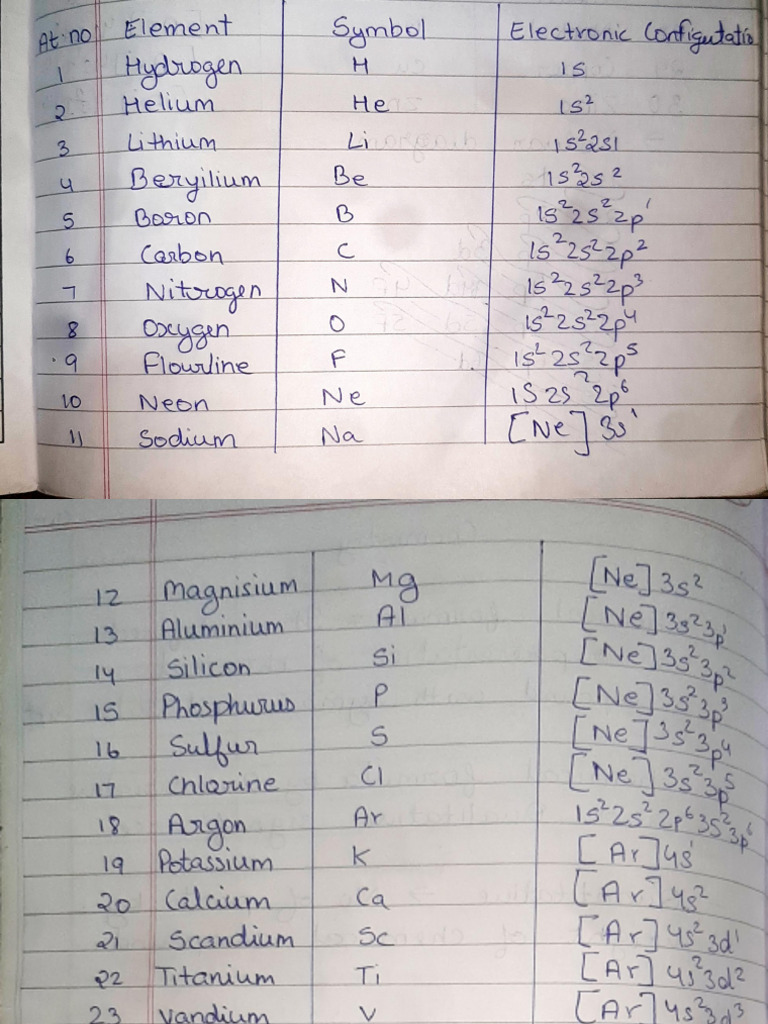 At. no Element Symbol Electronic Configutatio
1 Hydrogen H 1s
2 Helium He 1s²
3 Lithium Li 1s²2s1
4 Beryilium Be 1s²2s²
5 Boron B 1s²2s²2p¹
6 Carbon C 1s²2s²2p²
7 Nitrogen N 1s²2s²2p³
8 Oxygen O 1s²2s²2p⁴
9 Flourline F 1s²2s²2p⁵
10 Neon Ne 1s2s²2p⁶
11 Sodium Na [Ne]3s¹
12 Magnisium Mg [Ne]3s²
13 Aluminium Al [Ne]3s²3p¹
14 Silicon Si [Ne]3s²3p²
15 Phosphurus P [Ne]3s²3p³
16 Sulfur S [Ne]3s²3p⁴
17 Chlorine Cl [Ne]3s²3p⁵
18 Argon Ar 1s²2s²2p⁶3s²3p⁶
19 Potassium K [Ar]4s¹
20 Calcium Ca [Ar]4s²
21 Scandium Sc [Ar]4s²3d¹
22 Titanium Ti [Ar]4s²3d²
23 Vandium V [Ar]4s²3d³